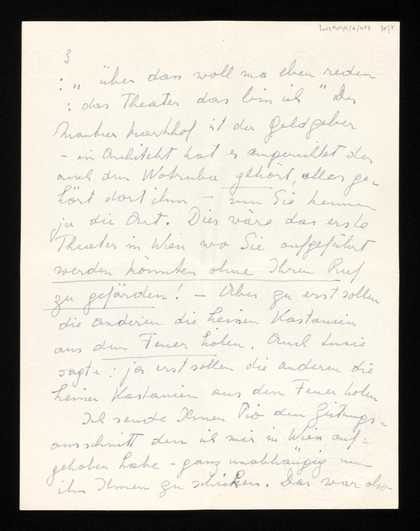 3
: „ über dass woll ma eben reden
: das Theater das bin ich " Der
ist der Geldgeber
– ein Architekt hat es der
auch den Wotruba gehört, alles ge-
hört dort ihm – nun Sie kennen
ja die Art. Dies wäre das erste
Theater in Wien wo Sie aufgeführt
werden könnten ohne Ihren Ruf
zu gefärden! – Aber zu erst sollen
die anderen die heissen Kastanien
aus dem Feuer holen. Auch
sagte: ja erst sollen die anderen die
heissen Kastanien aus dem Feuer holen
Ich sende Ihnen den Zeitungs-
ausschnitt den ich mir in Wien auf-
gehoben habe – ganz unabhängig um
ihn Ihnen zu schicken. Das war